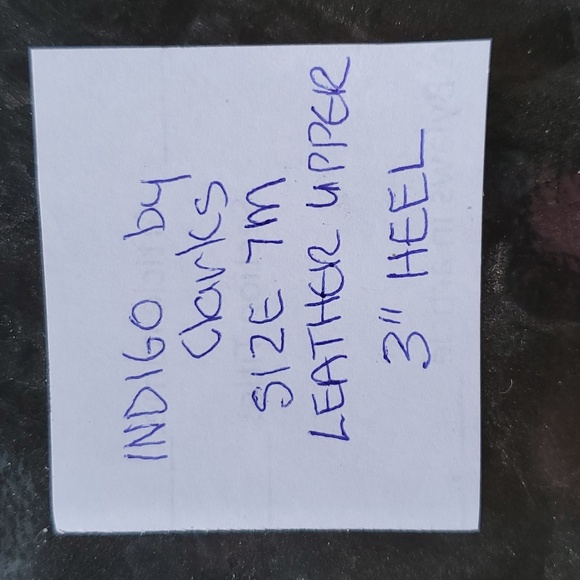 INDIGO by
Clarks
SIZE 7M
LEATHER UPPER
3" HEEL